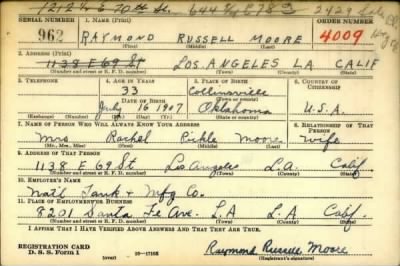 1212¼ E 70th St. 644¾ E 78
SERIAL NUMBER 1. NAME (Print) ORDER NUMBER
962 RAYMOND RUSSELL MOORE 4009
(First) (Middle) (Last)
2. ADDRESS (Print)
1138 E 69 ST LOS ANGELES LA CALIF
(Number and street or R. F. D. number) (Town) (County) (State)
3. TELEPHONE 4. AGE IN YEARS 5. PLACE OF BIRTH 6. COUNTRY OF CITIZENSHIP
33 Collinsville
DATE OF BIRTH (Town or county)
July 16 1907 Oklahoma U.S.A.
(Exchange) (No.) (Mo.) (Day) (Yr.) (State or country)
7. NAME OF PERSON WHO WILL ALWAYS KNOW YOUR ADDRESS 8. RELATIONSHIP OF THAT PERSON
Mrs Rachel Pickle Moore Wife
(Mr., Mrs., Miss) (First) (Middle) (Last)
9. ADDRESS OF THAT PERSON
1138 E 69 St Los Angeles L.A. Calif.
(Number and street or R. F. D. number) (Town) (County) (State)
10. EMPLOYER'S NAME
Nat'l Tank & Mfg Co.
11. PLACE OF EMPLOYMENT OR BUSINESS
8201 Santa Fe Ave. L.A L.A Calif.
(Number and street or R. F. D. number) (Town) (County) (State)
I AFFIRM THAT I HAVE VERIFIED ABOVE ANSWERS AND THAT THEY ARE TRUE.
REGISTRATION CARD
D. S. S. Form 1 16—17105 Raymond Russell Moore
(Registrant's signature)